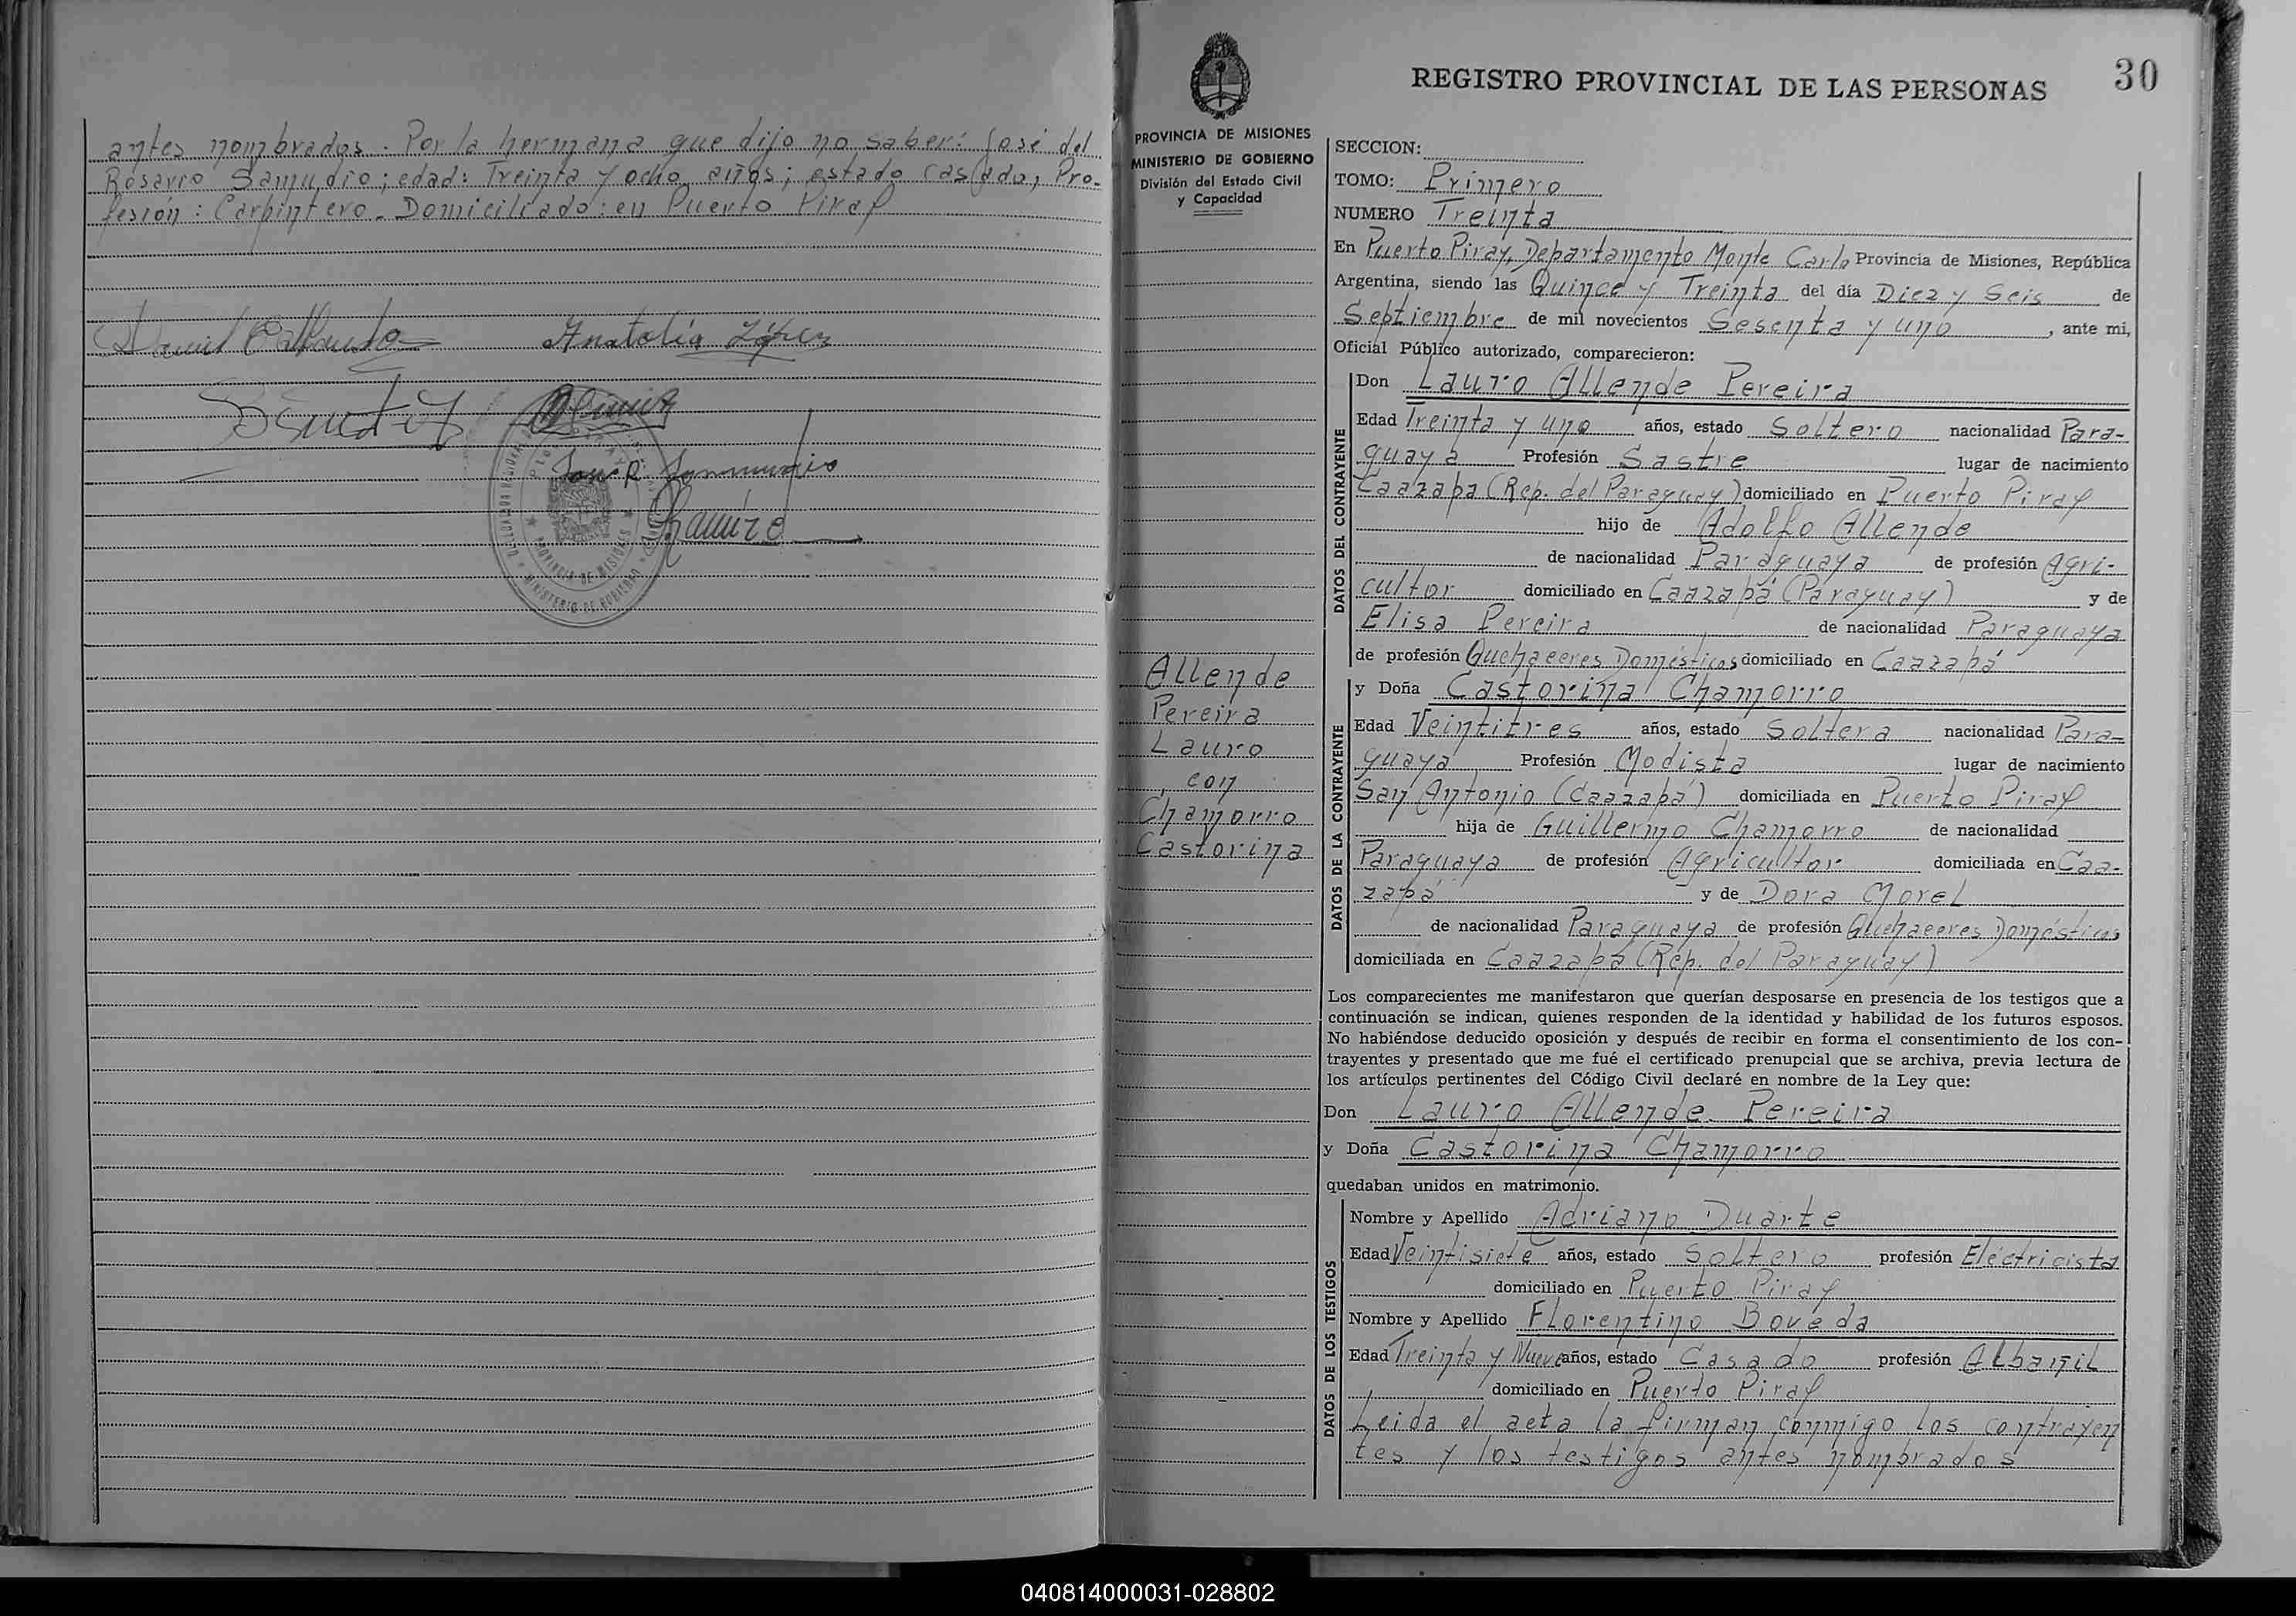 antes nombrados. Por la hermana que dijo no saber: José del
Rosario Samudio; edad: Treinta y ocho años; estado casado; Pro-
fesión: Carpintero. Domiciliado: en Puerto Piray
Anatolia López
Ramírez
PROVINCIA DE MISIONES
MINISTERIO DE GOBIERNO
30
REGISTRO PROVINCIAL DE LAS PERSONAS
PROVINCIA DE MISIONES
MINISTERIO DE GOBIERNO
División del Estado Civil
y Capacidad
Allende
Pereira
Lauro
con
Chamorro
Castorina
SECCION:
TOMO: Primero
NUMERO Treinta
En Puerto Piray, Departamento Monte Carlo Provincia de Misiones, República
Argentina, siendo las Quince y Treinta del día Diez y Seis de
Septiembre de mil novecientos Sesenta y uno, ante mi,
Oficial Público autorizado, comparecieron:
DATOS DEL CONTRAYENTE
Don Lauro Allende Pereira
Edad Treinta y uno años, estado Soltero nacionalidad Para-
guaya Profesión Sastre lugar de nacimiento
Caazapa (Rep. del Paraguay) domiciliado en Puerto Piray
hijo de Adolfo Allende
de nacionalidad Paraguaya de profesión Agri-
cultor domiciliado en Caazapá (Paraguay) y de
Elisa Pereira de nacionalidad Paraguaya
de profesión Quehaceres Domésticos domiciliado en Caazapá
DATOS DE LA CONTRAYENTE
y Doña Castorina Chamorro
Edad Veintitres años, estado Soltera nacionalidad Para-
guaya Profesión Modista lugar de nacimiento
San Antonio (Caazapá) domiciliada en Puerto Piray
hija de Guillermo Chamorro de nacionalidad
Paraguaya de profesión Agricultor domiciliada en Caa-
zapá y de Dora Morel
de nacionalidad Paraguaya de profesión Quehaceres Domésticos
domiciliada en Caazapá (Rep. del Paraguay)
Los comparecientes me manifestaron que querían desposarse en presencia de los testigos que a
continuación se indican, quienes responden de la identidad y habilidad de los futuros esposos.
No habiéndose deducido oposición y después de recibir en forma el consentimiento de los con-
trayentes y presentado que me fué el certificado prenupcial que se archiva, previa lectura de
los artículos pertinentes del Código Civil declaré en nombre de la Ley que:
Don Lauro Allende Pereira
y Doña Castorina Chamorro
quedaban unidos en matrimonio.
DATOS DE LOS TESTIGOS
Nombre y Apellido Adriano Duarte
Edad Veintisiete años, estado Soltero profesión Electricista
domiciliado en Puerto Piray
Nombre y Apellido Florentino Boveda
Edad Treinta y Nueve años, estado Casado profesión Albañil
domiciliado en Puerto Piray
Leida el acta la firman conmigo los contrayen
tes y los testigos antes nombrados
040814000031-028802